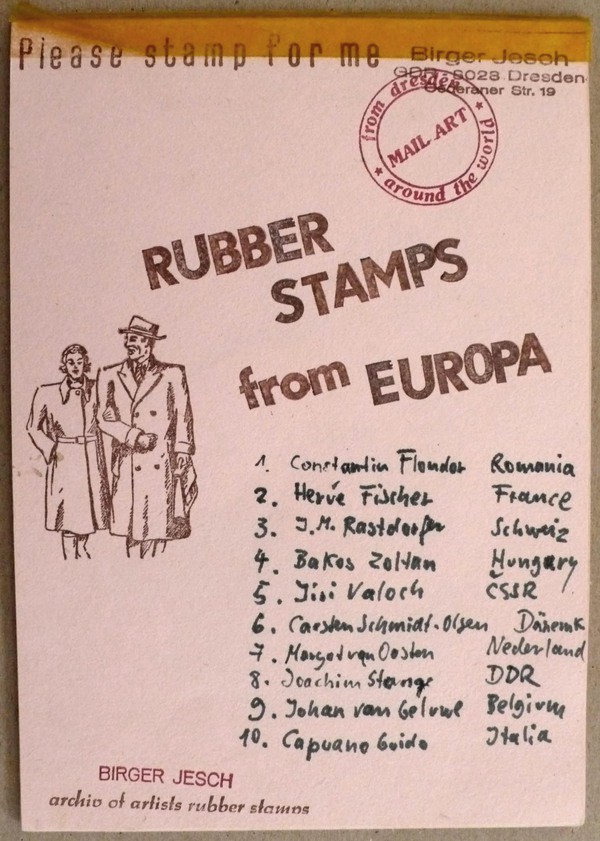 Please stamp for me
Birger Jesch
GDR 8023 Dresden
Oederaner Str. 19
from dresden
MAIL ART
around the world
RUBBER
STAMPS
from EUROPA
1. Constantin Flondor Romania
2. Hervé Fischer France
3. J.M. Rastdorfer Schweiz
4. Bakos Zoltan Hungary
5. Jiri Valoch ČSSR
6. Carsten Schmidt-Olsen Dänemk
7. Margot van Oosten Nederland
8. Joachim Stange DDR
9. Johan van Geluwe Belgium
10. Capuano Guido Italia
BIRGER JESCH
archiv of artists rubber stamps